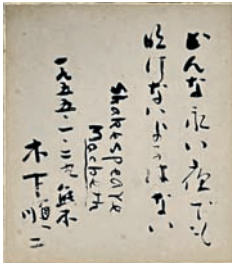 どんな永い夜でも
明けないことはない
Shakespeare
Macbeth
一九五五・一・二九 熊本
木下順二